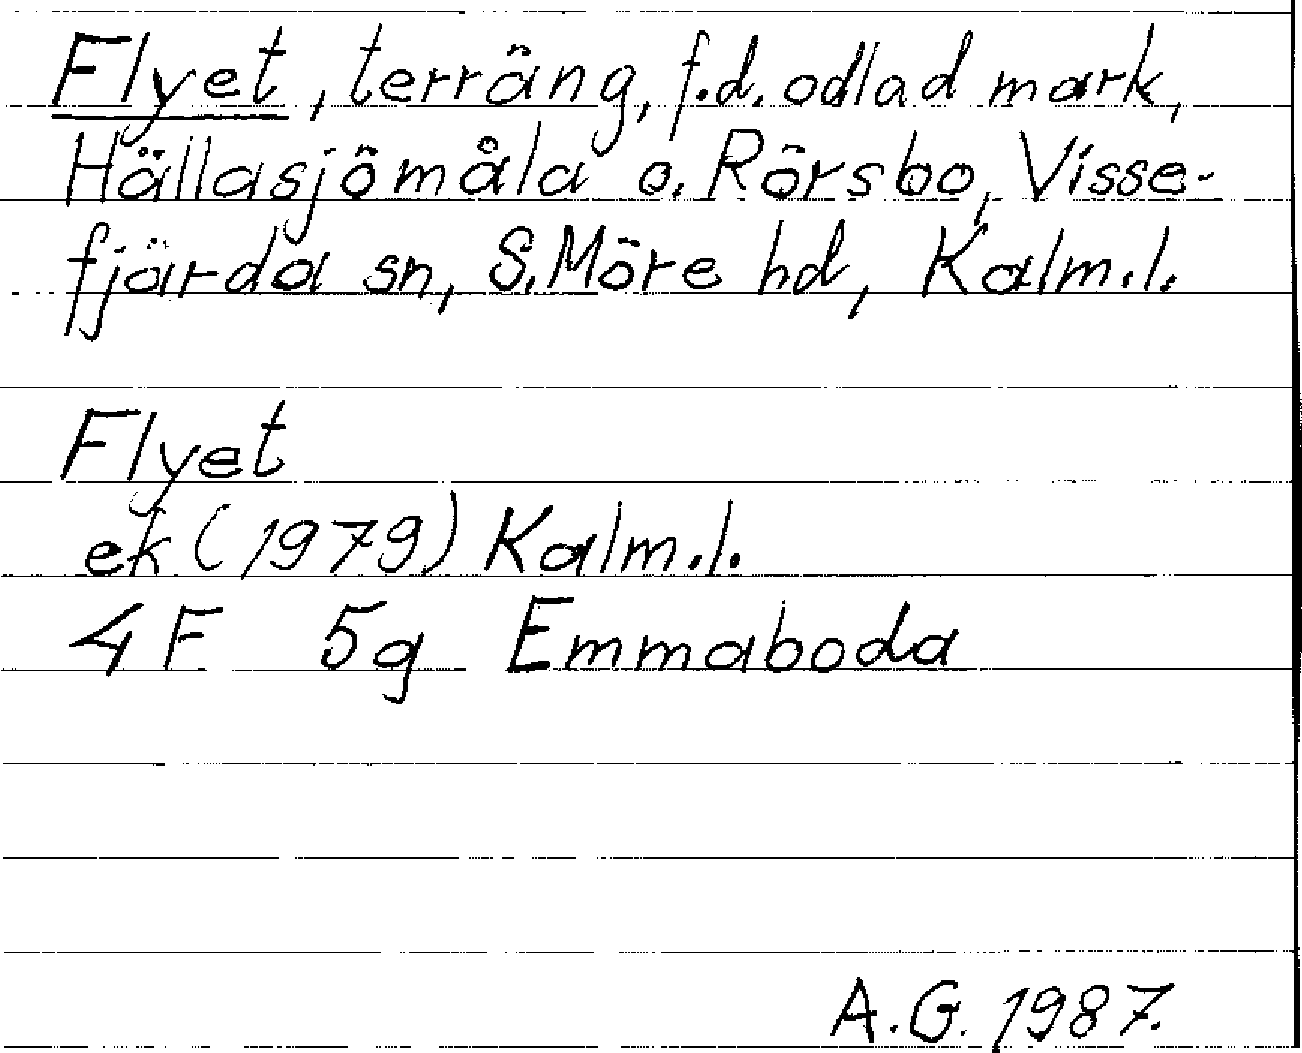 Flyet, terräng, f.d. odlad mark,
Hällasjömåla o. Rörsbo, Visse-
fjärda sn, S. Möre hd, Kalm.l.
Flyet
ek (1979) Kalm.l.
4F 5g Emmaboda
A.G. 1987.